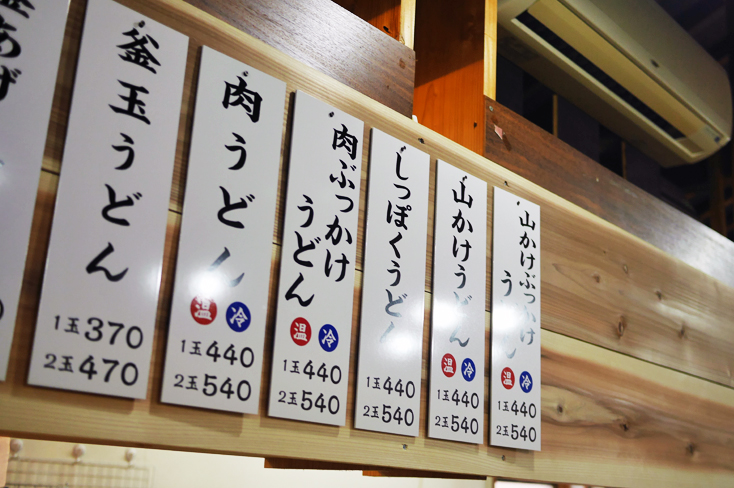 あげ
0
釜玉うどん
1玉370
2玉470
肉うどん
温 冷
1玉440
2玉540
肉ぶっかけ
うどん
温 冷
1玉440
2玉540
しっぽくうどん
1玉440
2玉540
山かけうどん
温 冷
1玉440
2玉540
山かけぶっかけ
うどん
温 冷
1玉440
2玉540